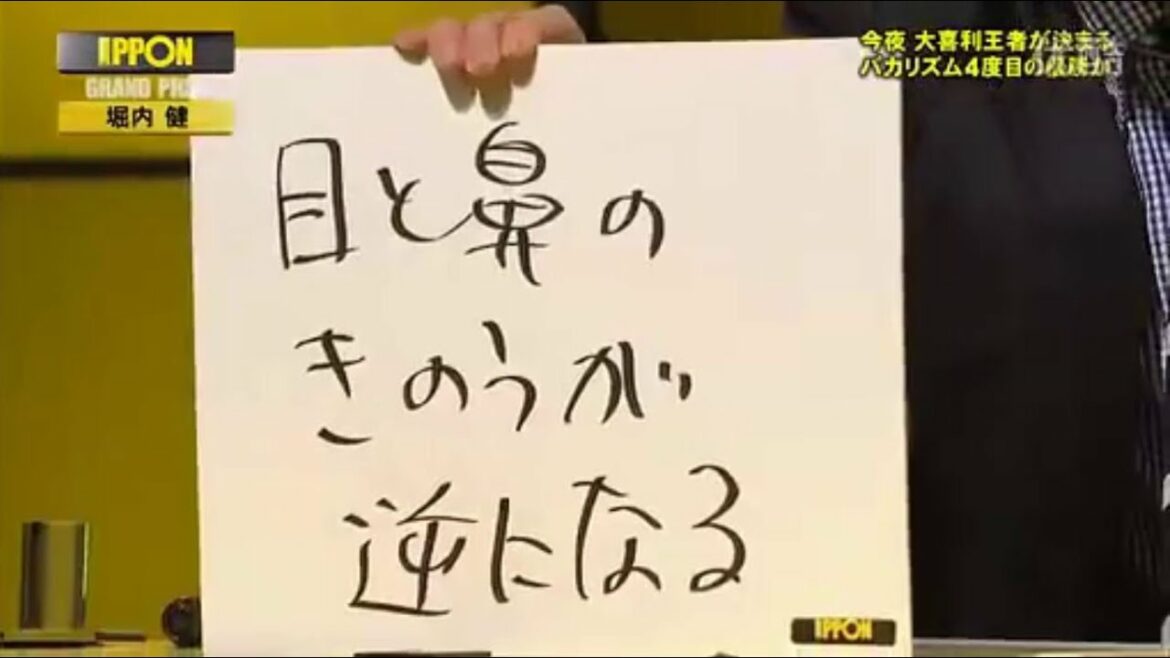 IPPON
GRAND PRI
堀内 健
今夜 大喜利王者が決まる
バカリズム4度目の
目と鼻の
きのうが
逆になる
IPPON